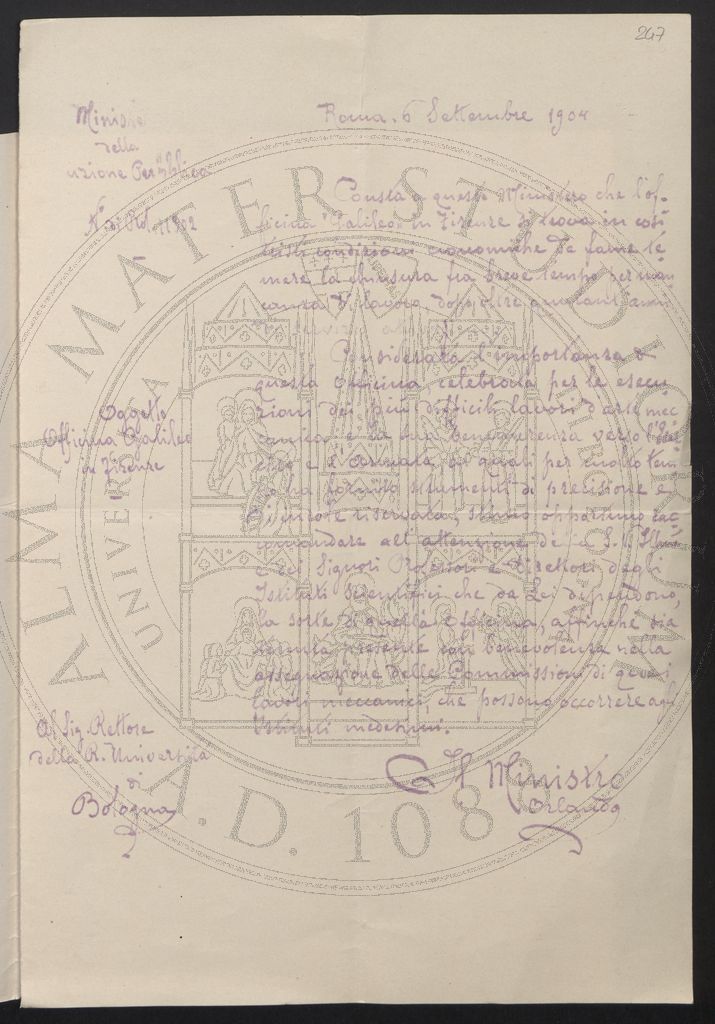 247
Roma, 6 Settembre 1904
Ministe
della
uzione Pubblica
N° di Pol. 1192
Oggetto
Officina Galileo
in Firenze
Consta a questo Ministero che l'of-
ficina "Galileo" in Firenze si trova in così
tristi condizioni economiche da farne te-
mere la chiusura fra breve tempo per man-
canza di lavoro dopo oltre quarant'anni
di
Considerata l'importanza di
questa Officina celebrata per le esecu-
zioni dei più difficili lavori d'arte mec-
canica e la sua benemerenza verso l'Eser-
cito e l'Armata, ai quali per molto tem-
po ha fornito strumenti di precisione e
riservata, stimo opportuno rac-
comandare all'attenzione della S. V. Illma
e dei Signori Professori e Direttori degli
Istituti Scientifici che da Lei dipendono,
la sorte di quella Officina, affinchè sia
tenuta presente con benevolenza nella
assegnazione delle Commissioni di quei
lavori meccanici, che possono occorrere agli
Istituti medesimi.
Al Sig. Rettore
della R. Università
di
Bologna
Il Ministro
Orlando
ALMA MATER STUDIORUM
A.D. 1088
UNIVERSITA